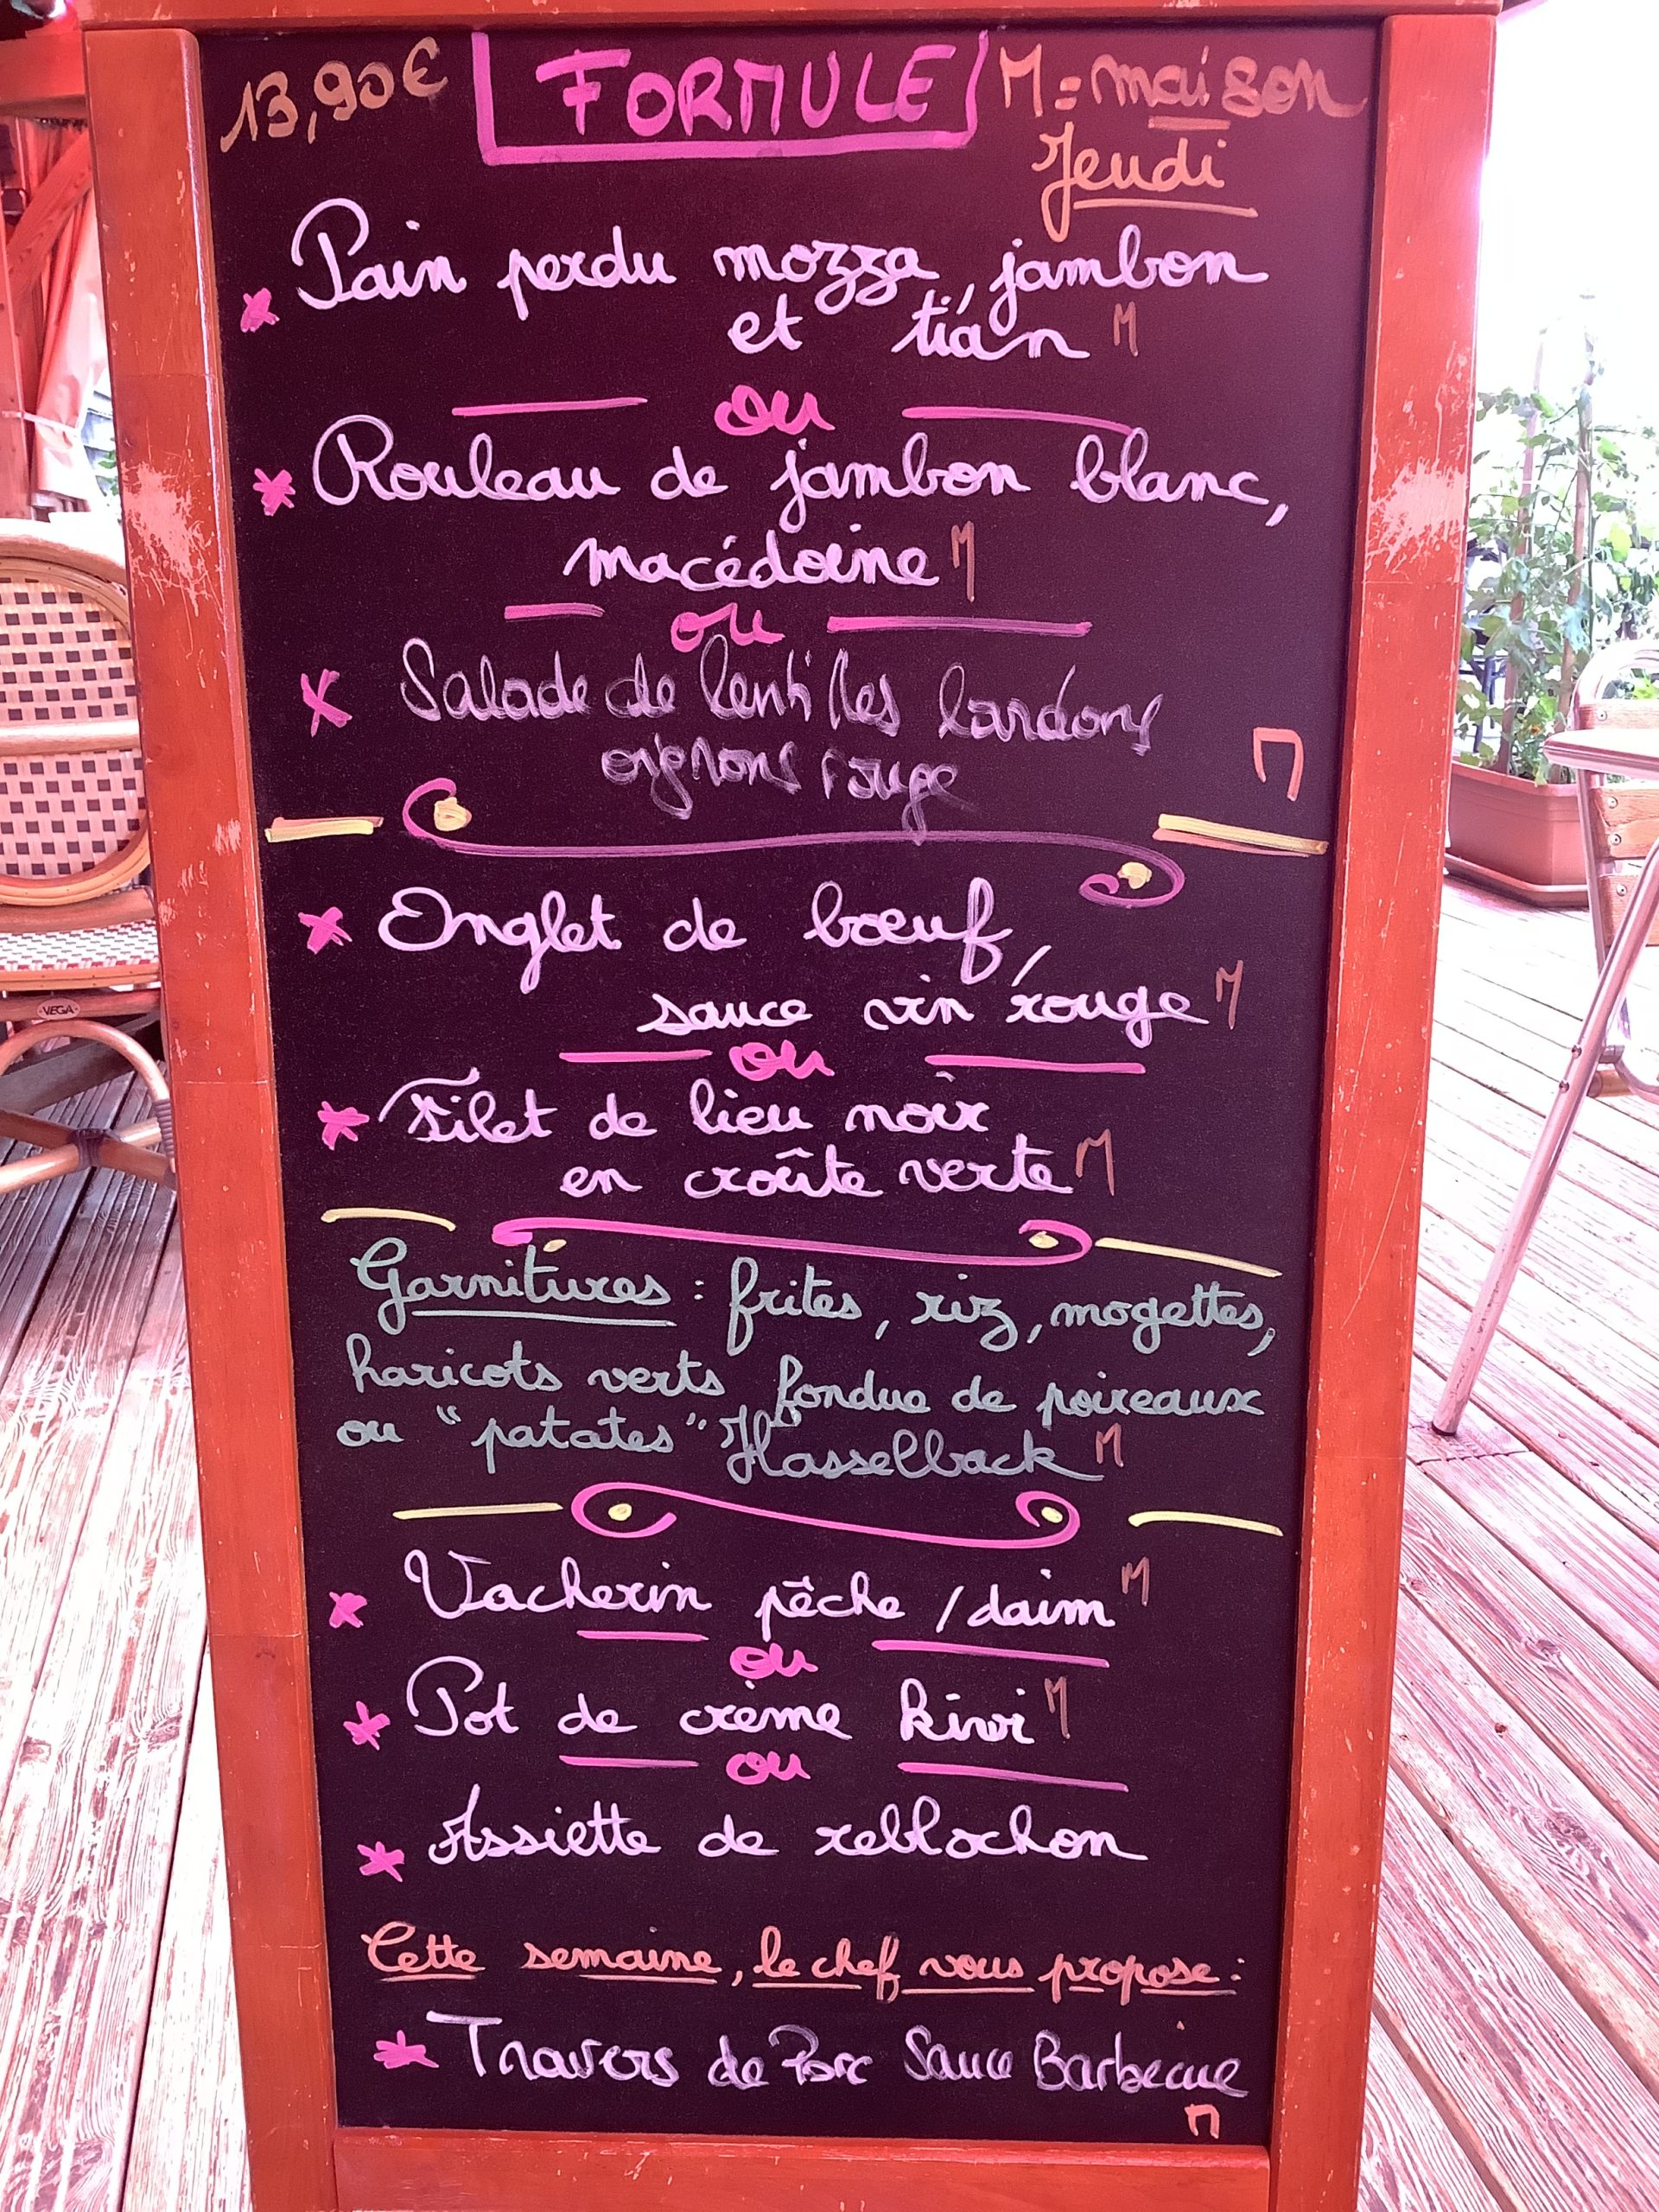 13,90€ FORMULE M = maison
Jeudi
* Pain perdu mozza, jambon
et tian M
ou
* Rouleau de jambon blanc,
macédoine M
ou
* Salade de lentilles lardons
oignons rouge M
* Onglet de bœuf,
sauce vin rouge M
ou
* Filet de lieu noir
en croûte verte M
Garnitures : frites, riz, mogettes,
haricots verts, fondue de poireaux
ou "patates" Hasselback M
* Vacherin pêche / daim M
ou
* Pot de crème kiwi M
ou
* Assiette de reblochon
Cette semaine, le chef vous propose :
* Travers de Porc Sauce Barbecue
M
VEGA